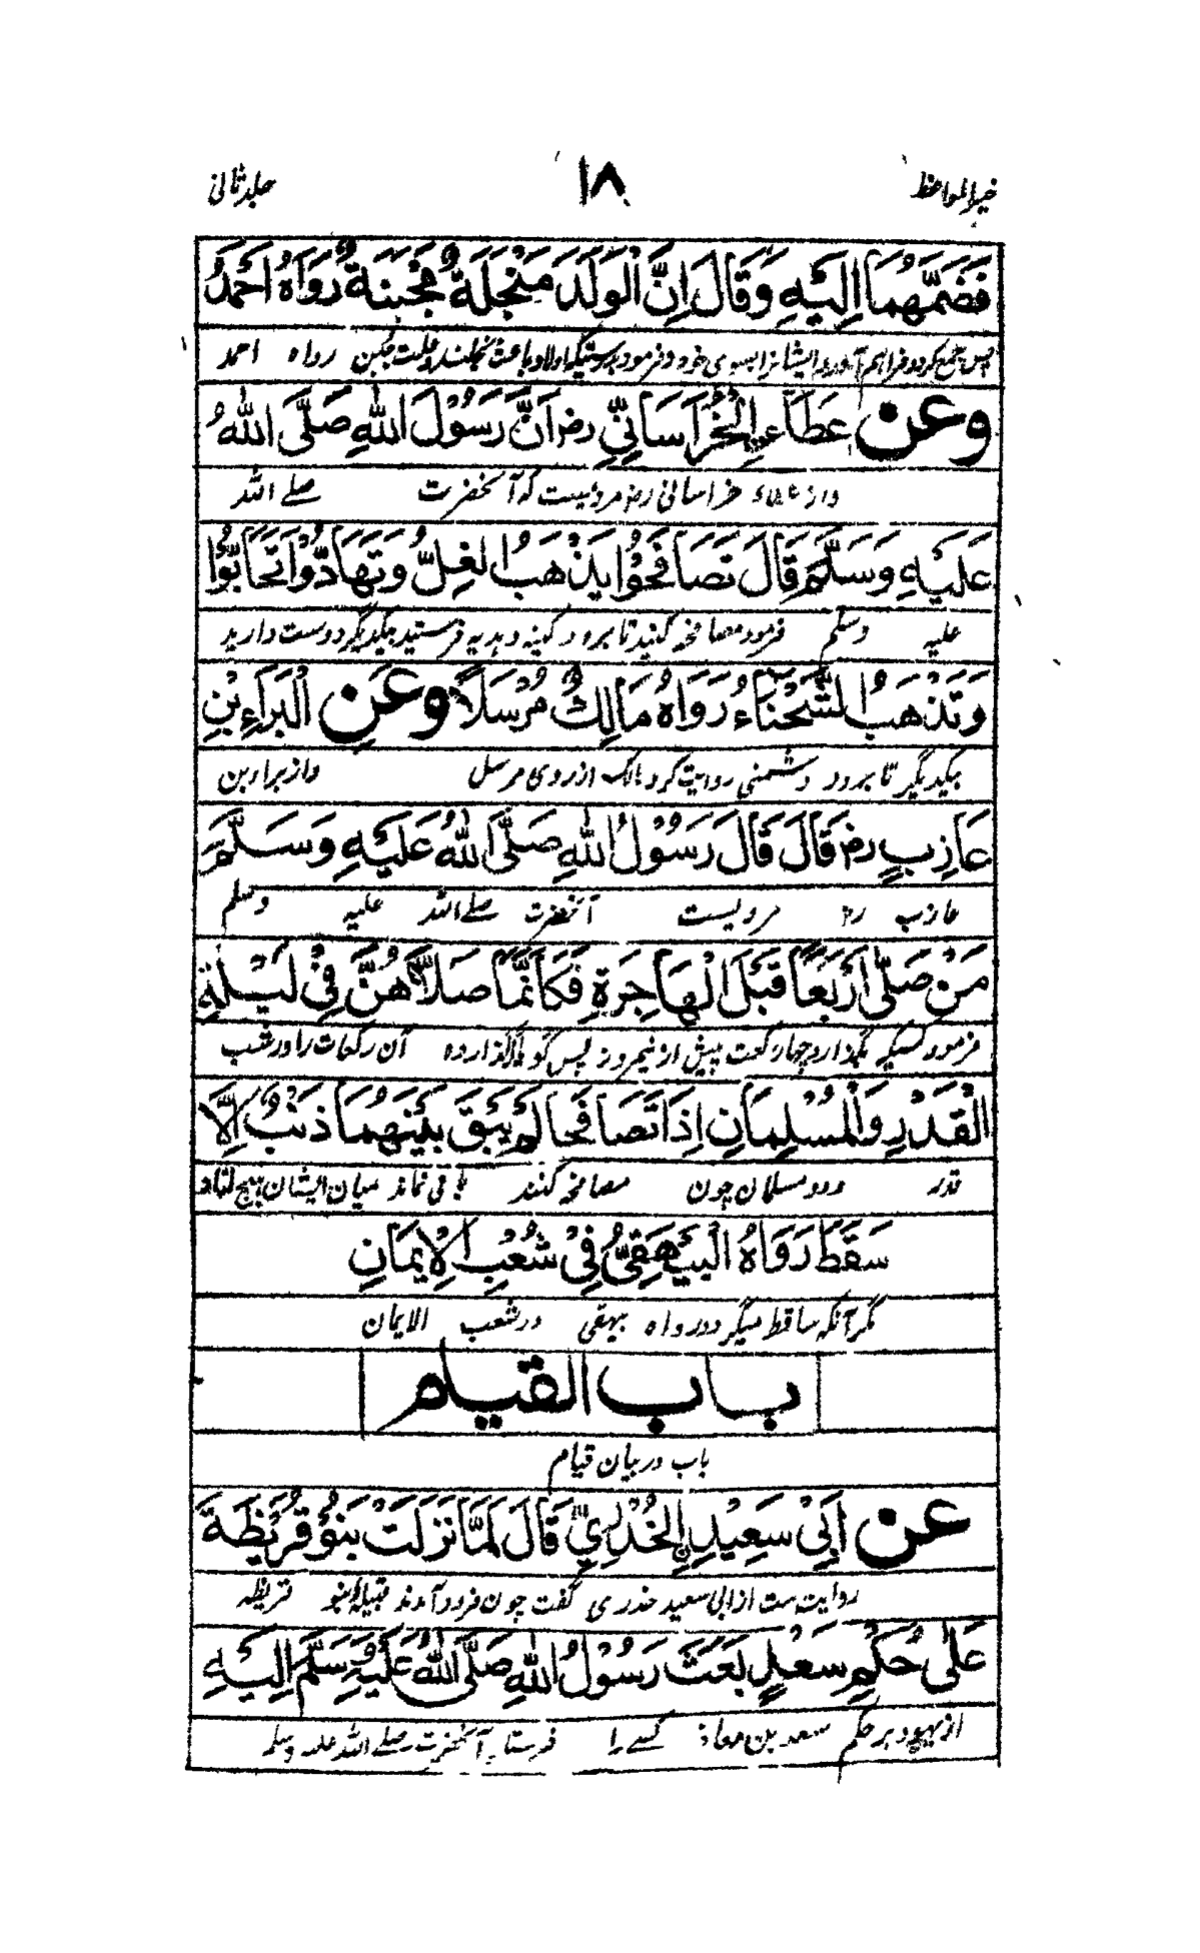 خیر المواعظ ۱۸ جلد ثانی
فَضَمَّهُمَا اِلَيْهِ وَقَالَ اِنَّ الْوَلَدَ مَنْجَلَةٌ مَجْبَنَةٌ رَوَاهُ اَحْمَدُ
پس جمع کرد و فراہم آورد ایشانرا بسوی خود و فرمود بدرستیکہ اولاد باعث بخلند و علت جبن رواہ احمد
وعن عَطَاءِ الْخُرَاسَانِيِّ رض اَنَّ رَسُوْلَ اللهِ صَلَّى اللهُ
و از عطاء خراسانی رض مرویست کہ آنحضرت صلے اللہ
عَلَيْهِ وَسَلَّمَ قَالَ تَصَافَحُوْا يَذْهَبُ الْغِلُّ وَتَهَادُّوْا تَحَابُّوْا
علیہ وسلم فرمود مصافحہ کنید تا برود کینہ و ہدیہ فرستید بیکدیگر دوست دارید
وَتَذْهَبُ الشَّحْنَاءُ رَوَاهُ مَالِكٌ مُرْسَلًا وعَنِ الْبَرَاءِ بْنِ
بیکدیگر تا برود دشمنی روایت کرد مالک از روی مرسل و از براء بن
عَازِبٍ رض قَالَ قَالَ رَسُوْلُ اللهِ صَلَّى اللهُ عَلَيْهِ وَسَلَّمَ
عازب رض مرویست آنحضرت صلے اللہ علیہ وسلم
مَنْ صَلّٰى اَرْبَعًا قَبْلَ الْهَاجِرَةِ فَكَاَنَّمَا صَلَّاهُنَّ فِيْ لَيْلَةِ
فرمود کسیکہ بگذارد چہار رکعت پیش از نیمروز پس گویا گذارده آن رکعات را در شب
الْقَدْرِ وَالْمُسْلِمَانِ اِذَا تَصَافَحَا لَمْ يَبْقَ بَيْنَهُمَا ذَنْبٌ اِلَّا
قدر و دو مسلمان چون مصافحہ کنند باقی نماند میان ایشان ہیچ گناہ
سَقَطَ رَوَاهُ الْبَيْهَقِيُّ فِيْ شُعَبِ الْاِيْمَانِ
مگر آنکہ ساقط میگردد رواہ بیہقی در شعب الایمان
باب القیام
باب در بیان قیام
عن اَبِيْ سَعِيْدِ الْخُدْرِيِّ قَالَ لَمَّا نَزَلَتْ بَنُوْ قُرَيْظَةَ
روایت ست از ابی سعید خدری گفت چون فرود آمدند قبیلہ بنو قریظہ
عَلٰى حُكْمِ سَعْدٍ بَعَثَ رَسُوْلُ اللهِ صَلَّى اللهُ عَلَيْهِ وَسَلَّمَ اِلَيْهِ
از یہود بر حکم سعد بن معاذ کسے را فرستاد آنحضرت صلے اللہ علیہ وسلم